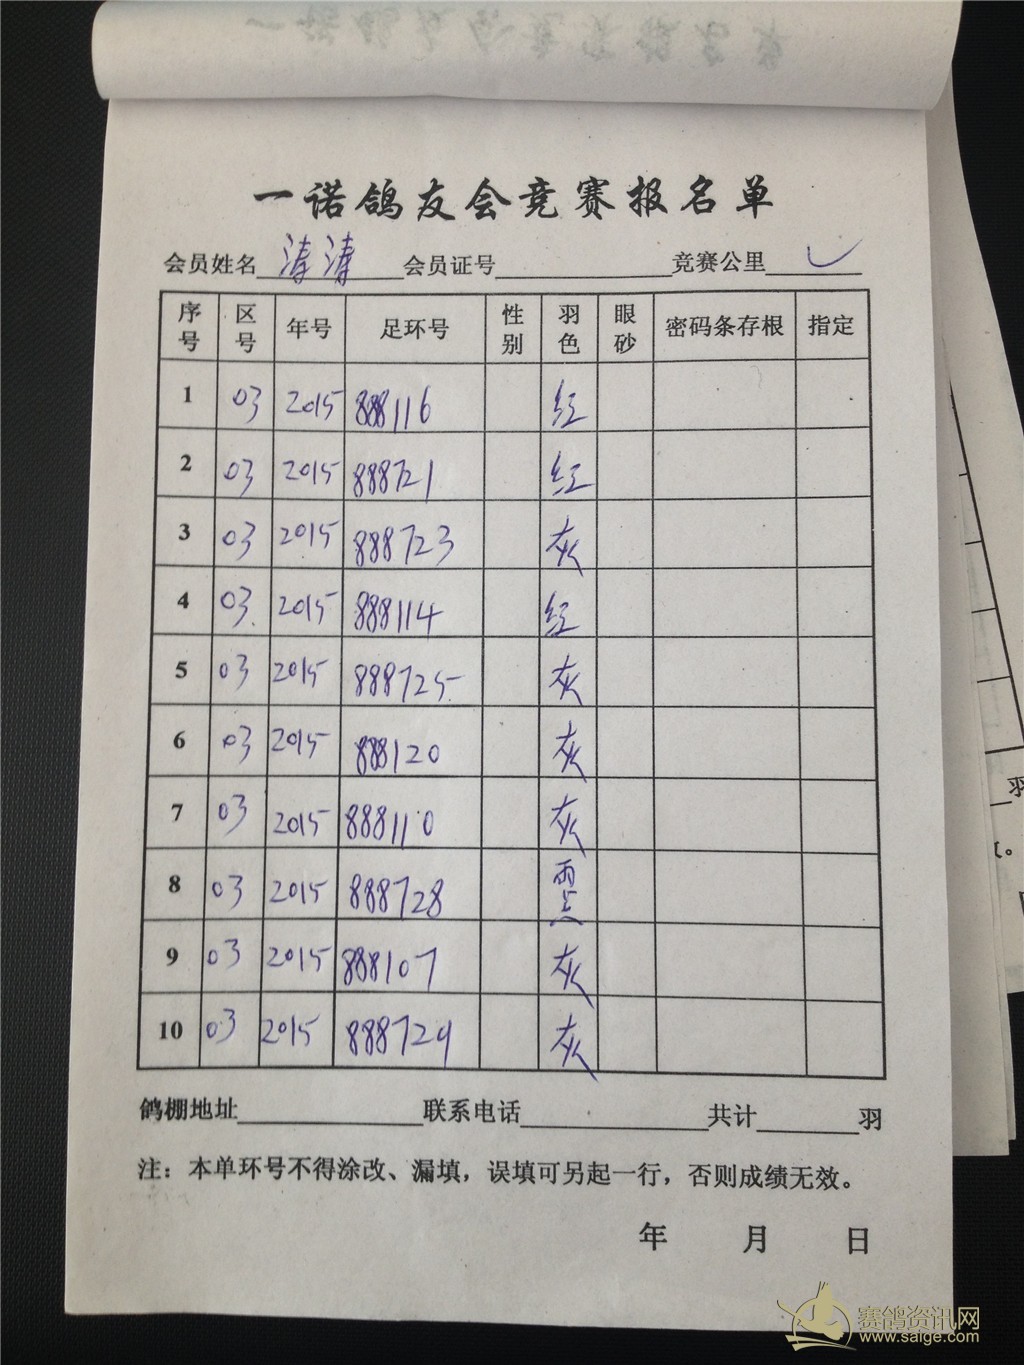 一诺鸽友会竞赛报名单
会员姓名 涛涛 会员证号 竞赛公里
序号 区号 年号 足环号 性别 羽色 眼砂 密码条存根 指定
1 03 2015 888116 红
2 03 2015 888721 红
3 03 2015 888723 灰
4 03 2015 888114 红
5 03 2015 888725 灰
6 03 2015 888120 灰
7 03 2015 888110 灰
8 03 2015 888728 雨点
9 03 2015 888107 灰
10 03 2015 888729 灰
鸽棚地址 联系电话 共计 羽
注：本单环号不得涂改、漏填，误填可另起一行，否则成绩无效。
年 月 日
羽
赛鸽资讯网
www.saige.com